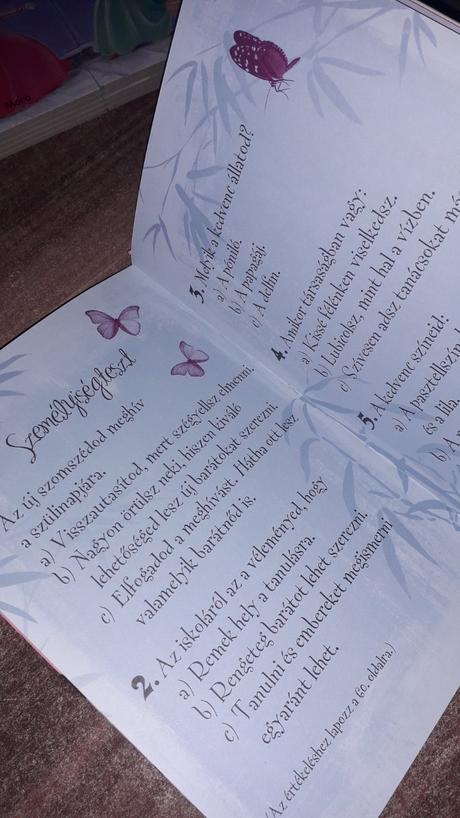 Személyiségteszt
Az új szomszédod meghív
a szülinapjára.
a) Visszautasítod, mert szégyellsz elmenni.
b) Nagyon örülsz neki, hiszen kiváló
lehetőséged lesz új barátokat szerezni.
c) Elfogadod a meghívást. Hátha ott lesz
valamelyik barátnőd is.
2. Az iskoláról az a véleményed, hogy
a) Remek hely a tanulásra.
b) Rengeteg barátot lehet szerezni.
c) Tanulni és embereket megismerni
egyaránt lehet.
(Az értékeléshez lapozz a 60. oldalra.)
3. Melyik a kedvenc állatod?
a) A póniló.
b) A papagáj.
c) A delfin.
4. Amikor társaságban vagy:
a) Kissé félénken viselkedsz.
b) Lubickolsz, mint hal a vízben.
c) Szívesen adsz tanácsokat
5. A kedvenc színeid:
a) A pasztellszín
és a lila.
b) A